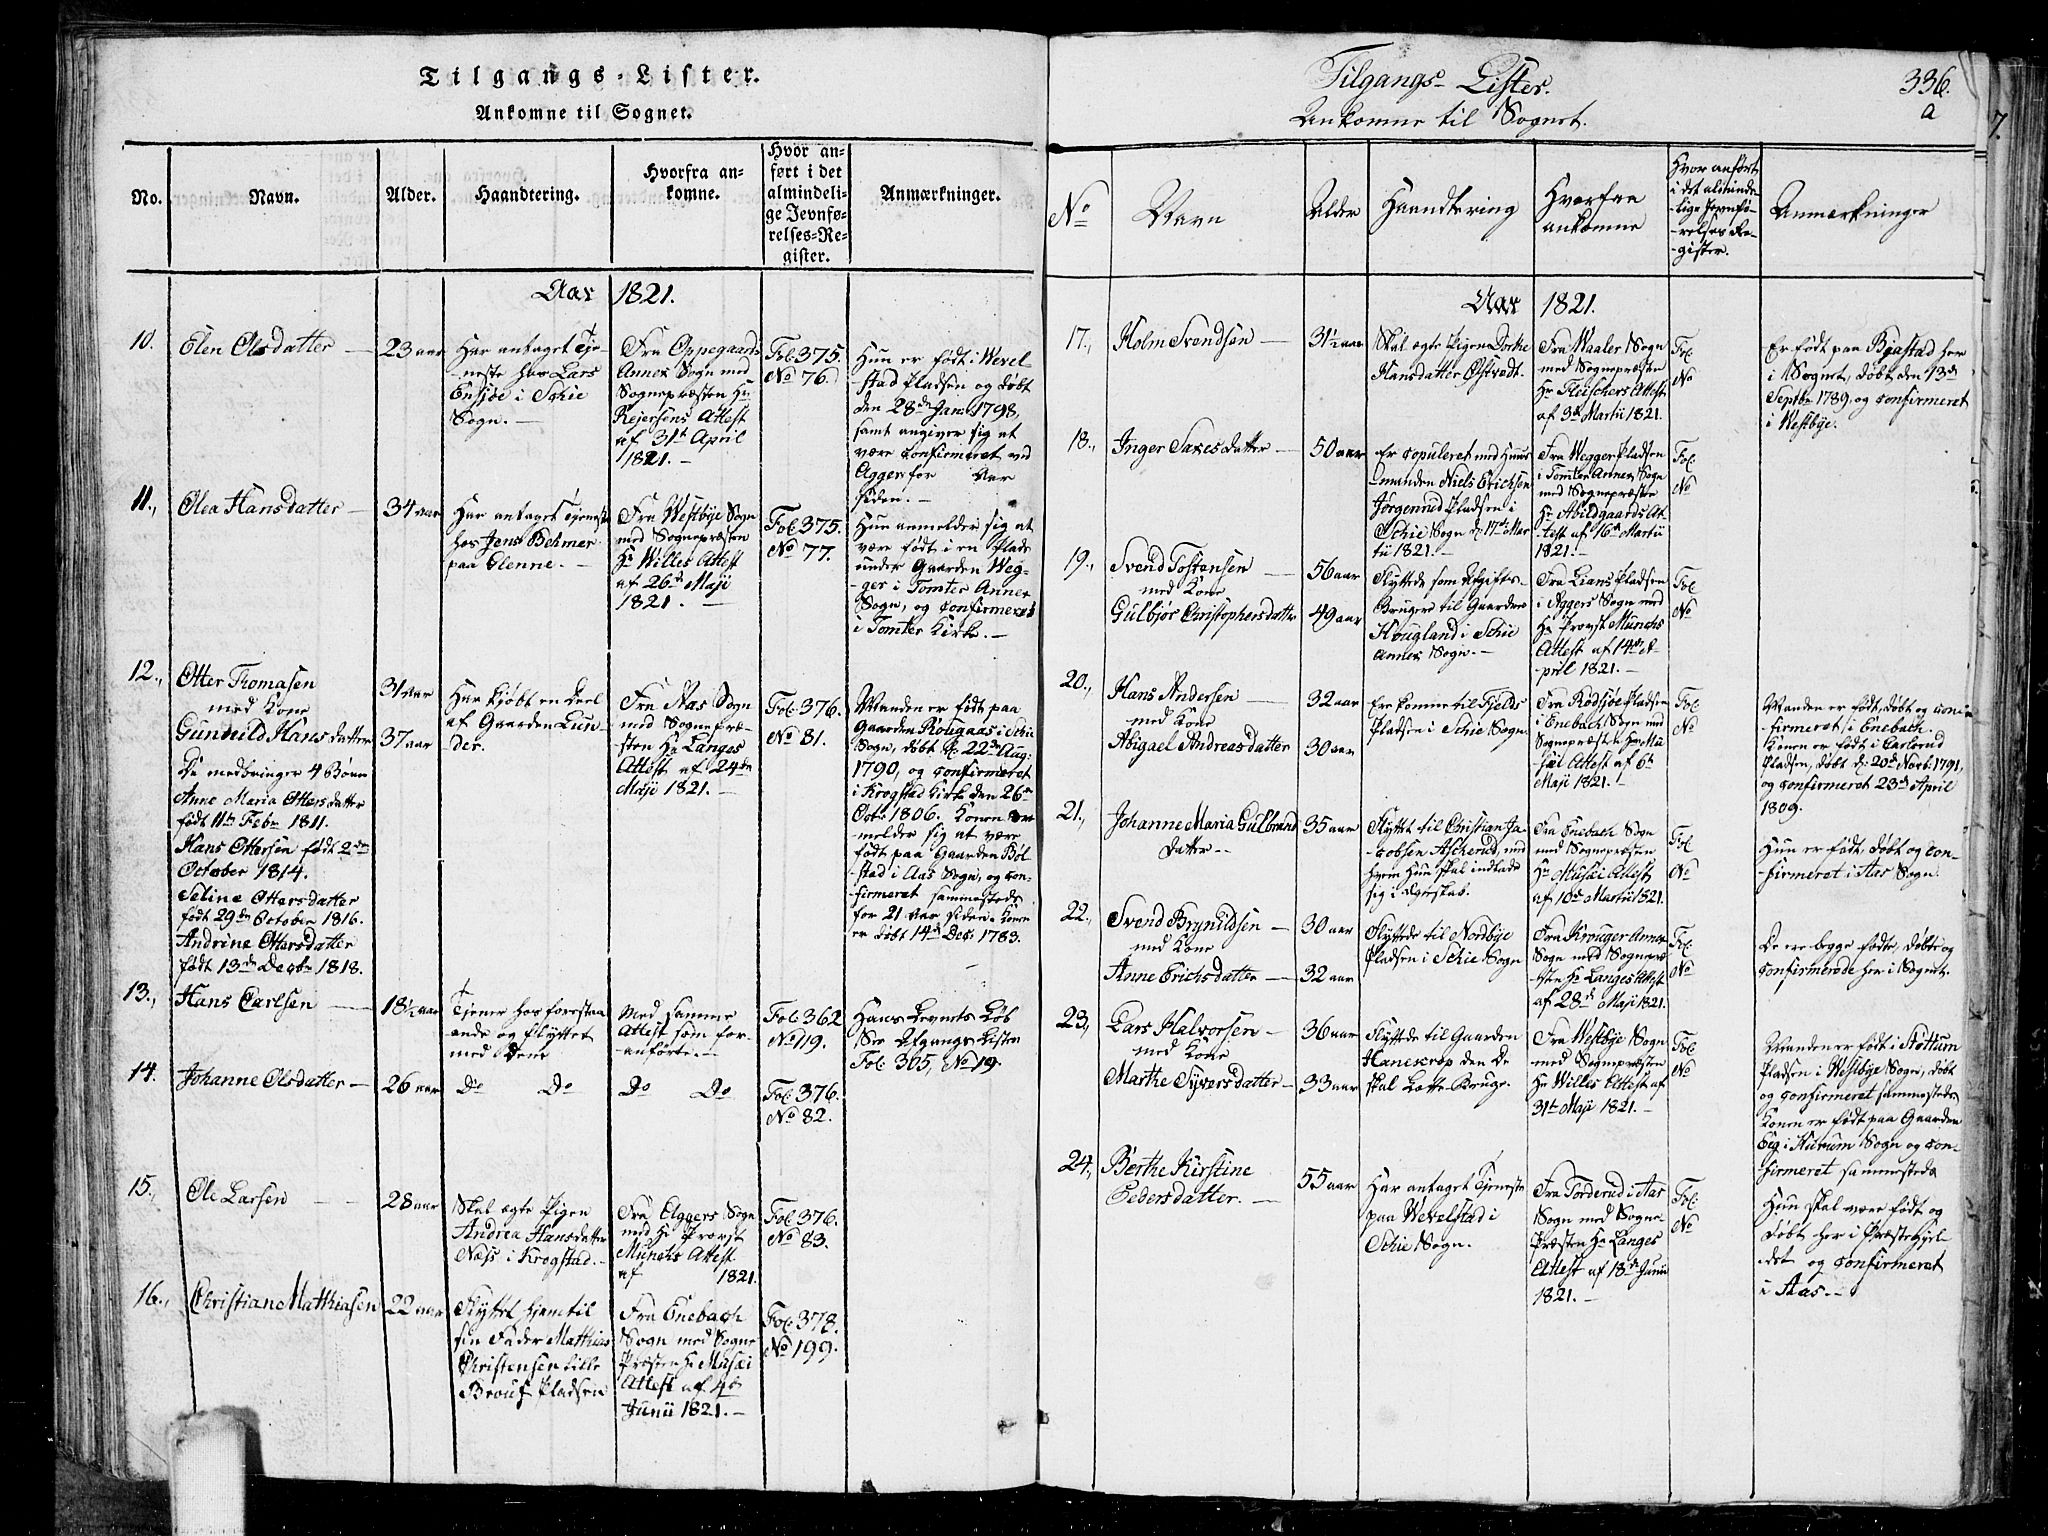 Tilgangs-Lister.
Ankomne til Sognet.
No.
Navn.
Alder.
Haandtering.
Hvorfra an-
komne.
Hvor an-
ført i det
almindeli-
ge Jevnfø-
relses-Re-
gister.
Anmærkninger.
Aar 1821.
10.
Elen Olsdatter
23 aar
Har antaget Tje-
neste hos Lars
Ensjøe i Schie
Sogn.
Fra Oppegaards
Annex Sogn med
Sognepræsten Hr
Rejersens Attest
af 31te April
1821.
Fol. 375.
No 76.
Hun er født i Wevel
stad Pladsen og døbt
den 28de Jan: 1798,
samt angiver sig at
være confirmeret ved
Agger for Aar
siden.
11.,
Olea Hansdatter
34 aar
Har antaget Tjeneste
hos Jens Behmer
paa Glenne.
Fra Westbye Sogn
med Sognepræsten
Hr Willes Attest
af 26de Maji
1821.
Fol 375.
No 77.
Hun anmelder sig at
være født i en Plads
under Gaarden Weg-
ger i Tomter Annex
Sogn, og confirmeret
i Tomter Kirke.
12.,
Otter Thomasen
med Kone
Gunnild Hansdatter
De medbringer 4 Børn
Anne Maria Ottersdatter
født 11te Febr 1811.
Hans Ottersen født 2den
October 1814.
Seline Ottersdatter
født 29de October 1816.
Andrine Ottersdatter
født 13de Decbr 1818.
31 aar
37 aar
Har kjøbt en Deel
af Gaarden Lun-
der.
Fra Aas Sogn
med Sognepræ-
sten Hr Langes
Attest af 24de
Maji 1821.
Fol. 376.
No 81.
Manden er født paa
Gaarden Kougaas i Schie
Sogn, døbt d: 22de Aug:
1790, og confirmeret
i Krogstad Kirke den 26de
Octr 1806. Konen an-
melder sig at være
født paa Gaarden Bøl-
stad i Aas Sogn, og con-
firmeret sammesteds
for 21 aar siden. Konen
er døbt 14de Dec: 1783.
13.,
Hans Carlsen
18½ aar
Tjener hos forestaa-
ende og flyttet
med dene
Med samme
Attest som for-
anførte.
Fol 362
No 119.
Hans Levnets Løb
See Afgangs Listen
Fol. 305, No 19.
14.
Johanne Olsdatter
26 aar
Do Do
Do Do
Fol 376.
No 82.
15.,
Ole Larsen
28 aar
Skal ægte Pigen
Andrea Hansdatter
Næss i Krogstad.
Fra Aggers Sogn
med Hr Provst
Münchs Attest
af 1821.
Fol 376.
No 83.
16.,
Christian Matthiasen
22 aar
Flyttet hjem til
sin Fader Matthias
Christensen Lille
Broug Pladsen
Fra Enebach
Sogn med Sogne-
Præsten Hr Musæi
Attest af 4de
Junii 1821.
Fol 378.
No 199.
Tilgangs-Lister.
Ankomne til Sognet.
336.
a
7.
No
Navn
Alder
Haandtering
Hvorfra
ankomne
Hvor anført
i det alminde-
lige Jevnfø-
relses Re-
gister.
Anmærkninger
Aar 1821.
17.,
Holm Svendsen
31½ aar
Skal ægte Pigen Dorthe
Hansdatter Østvedt.
Fra Waaler Sogn
med Sognepræsten
Hr Fleischers Attest
af 3de Martii 1821.
Fol
No
Er født paa Byastad her
i Sognet, døbt den 13de
Septbr 1789, og confirmeret
i Westbye.
18.,
Inger Saxesdatter
50 aar
Er copuleret med Huus-
manden Niels Erichsen
Jørgenrud Pladsen i
Schie Sogn d. 17de Mar-
tii 1821.
Fra Wegger Pladsen
i Tomter Annex Sogn
med Sognepræsten
Hr Abildgaards At-
test af 16de Martii
1821.
Fol
No
19.,
Svend Tostensen
med Kone
Gulbjør Christophersdatter
56 aar
49 aar
Flyttede som Afgifts-
Bruger til Gaarden
Hougland i Schie
Annex Sogn.
Fra Lians Pladsen
i Aggers Sogn med
Hr Provst Münchs
Attest af 14de A-
pril 1821.
Fol
No
20.,
Hans Andersen
med Kone
Abigael Andreasdatter
32 aar
30 aar
Er kommen til Fjelds
Pladsen i Schie Sogn
Fra Rødsjøe Pladsen
i Enebach Sogn med
Sognepræsten Hr Mu-
sæi Attest af 6te
Maji 1821.
Fol
No
Manden er født, døbt og con-
firmeret i Enebach.
Konen er født i Carlsrud
Pladsen, døbt d: 20de Novb: 1791,
og confirmeret 23de April
1809.
21.,
Johanne Maria Gulbrands
datter
35 aar
Flyttet til Christian Ja-
cobsen Ascherud, med
hvem Hun skal indlade
sig i Ægteskab.
Fra Enebach Sogn
med Sognepræsten
Hr Musæi Attest
af 10de Martii 1821.
Fol
No
Hun er født, døbt og con-
firmeret i Aas Sogn.
22.,
Svend Brynildsen
med Kone
Anne Erichsdatter
30 aar
32 aar
Flyttede til Nordbye
Pladsen i Schie Sogn
Fra Krouger Annex
Sogn med Sognepræ-
sten Hr Langes Attest
af 28de Maji 1821.
Fol
No
De ere begge fødte, døbte og
confirmerede her i Sognet.
23.,
Lars Halvorsen
med Kone
Marthe Syversdatter
36 aar
33 aar
Flyttede til Gaarden
Hanescrop den De
skal Lotte-Bruge.
Fra Westbye Sogn
med Sognepræsten
Hr Willes Attest af
31te Maji 1821.
Fol
No
Manden er født i Støttum
Pladsen i Westbye Sogn, døbt
og confirmeret sammesteds
Konen er født paa Gaarden
Eeg i Hurum Sogn og con-
firmeret sammesteds
24.,
Berthe Kirstine
Pedersdatter.
55 aar
Har antaget Tjeneste
paa Wevelstad i
Schie Sogn.
Fra Torderud i Aas
Sogn med Sogne-
Præsten Hr Langes
Attest af 18de Junii
1821.
Fol
No
Hun skal være født og
døbt her i Præstegjel-
det og confirmeret
i Aas.